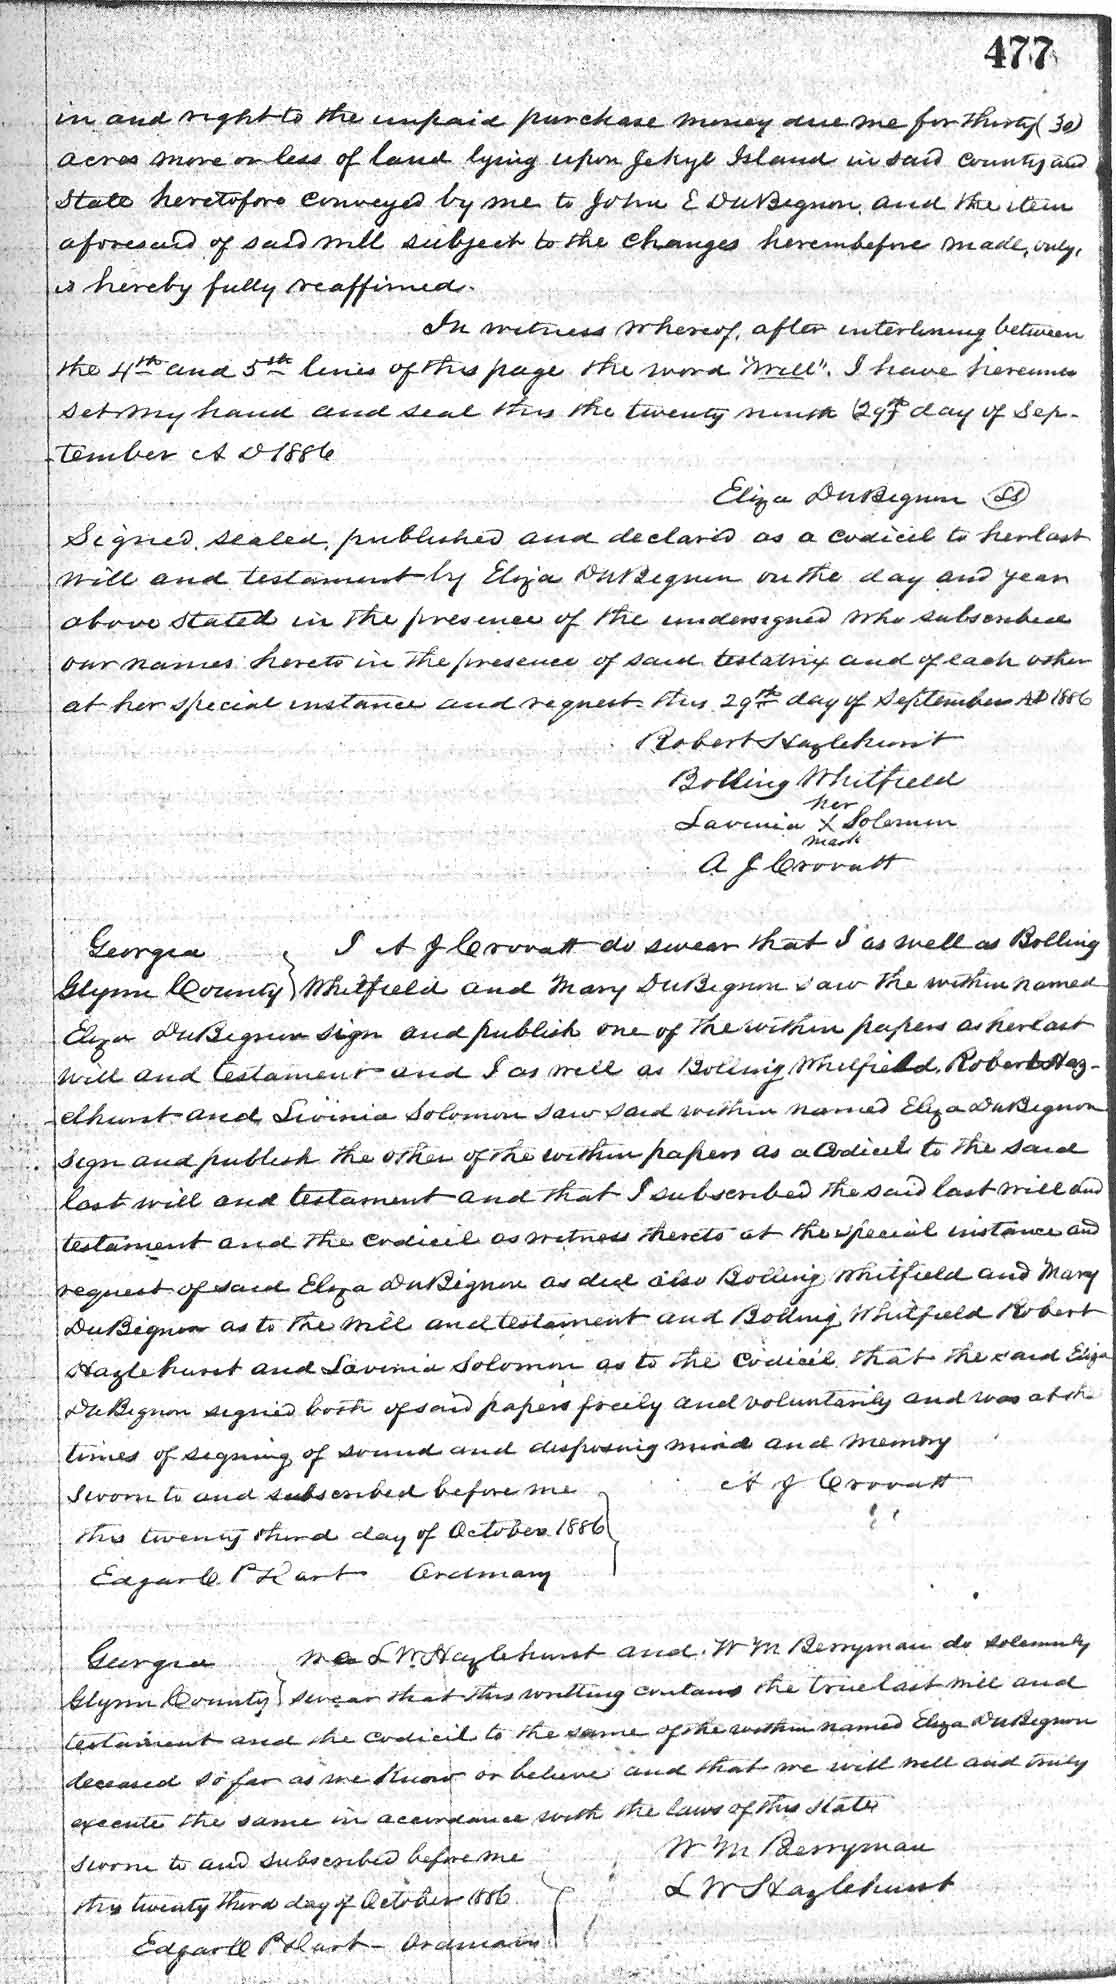 477
in and right to the unpaid purchase money due me for thirty (30)
acres more or less of land lying upon Jekyl Island in said county and
State heretofore conveyed by me to John E DuBignon, and the item
aforesaid of said will subject to the changes hereinbefore made, only,
is hereby fully reaffirmed.
In witness whereof, after interlining between
the 4th and 5th lines of this page the word "Will". I have hereunto
set my hand and seal this the twenty ninth (29th) day of Sep-
tember A D 1886
Eliza DuBignon LS
Signed, sealed, published and declared as a codicil to her last
will and testament by Eliza DuBignon on the day and year
above stated in the presence of the undersigned who subscribed
our names hereto in the presence of said testatrix and of each other
at her special instance and request this 29th day of September AD 1886
Robert Hazlehurst
Bolling Whitfield
her
Lavinia X Solomon
mark
A J Crovatt
Georgia } I A J Crovatt do swear that I as well as Bolling
Glynn County } Whitfield and Mary DuBignon saw the within named
Eliza DuBignon sign and publish one of the within papers as her last
will and testament and I as well as Bolling Whitfield, Robert Haz-
elhurst and Livinia Solomon saw said within named Eliza DuBignon
sign and publish the other of the within papers as a Codicil to the said
last will and testament and that I subscribed the said last will and
testament and the codicil as witness thereto at the special instance and
request of said Eliza DuBignon as did also Bolling Whitfield and Mary
DuBignon as to the will and testament and Bolling Whitfield Robert
Hazlehurst and Lavinia Solomon as to the codicil, that the said Eliza
DuBignon signed both of said papers freely and voluntarily and was at the
times of signing of sound and disposing mind and memory
Sworn to and subscribed before me A J Crovatt
this twenty third day of October 1886
Edgar C P Dart Ordinary
Georgia } We L W Hazlehurst and W M Berryman do solemnly
Glynn County } swear that this writing contains the true last will and
testament and the codicil to the same of the within named Eliza DuBignon
deceased so far as we know or believe and that we will well and truly
execute the same in accordance with the laws of this State
Sworn to and subscribed before me W M Berryman
this twenty third day of October 1886 L W Hazlehurst
Edgar C P Dart - Ordinary